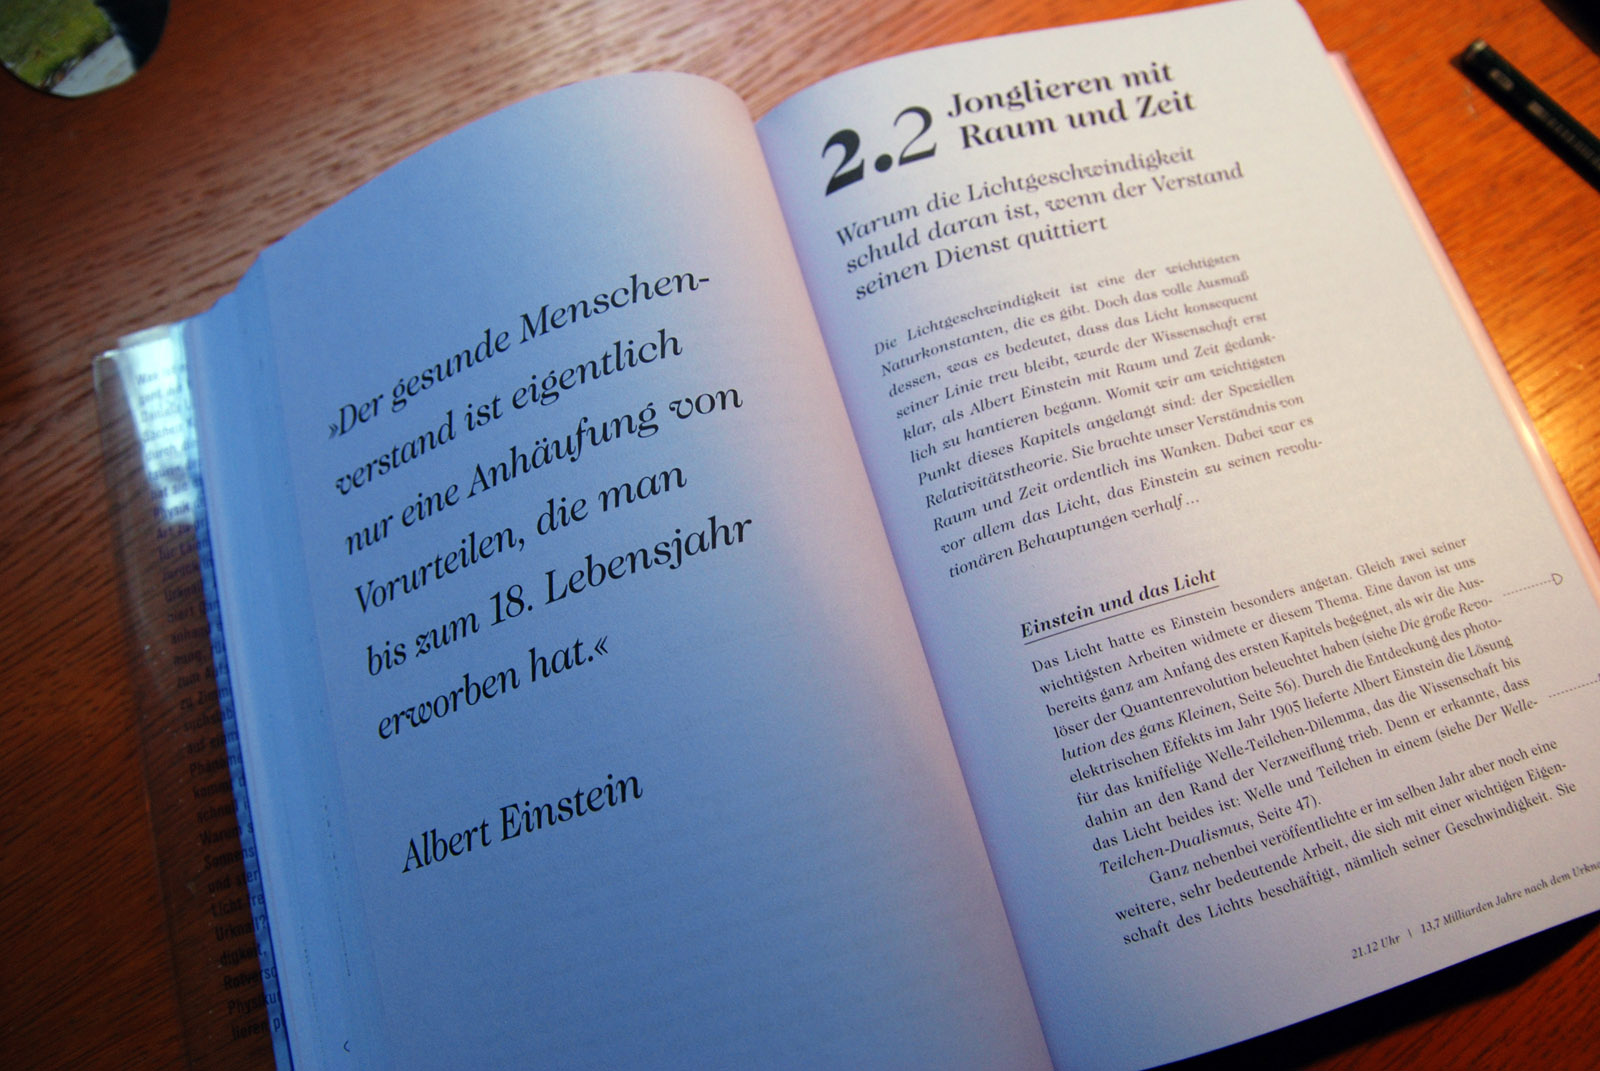 »Der gesunde Menschen-
verstand ist eigentlich
nur eine Anhäufung von
Vorurteilen, die man
bis zum 18. Lebensjahr
erworben hat.«
Albert Einstein
2.2 Jonglieren mit
Raum und Zeit
Warum die Lichtgeschwindigkeit
schuld daran ist, wenn der Verstand
seinen Dienst quittiert
Die Lichtgeschwindigkeit ist eine der wichtigsten
Naturkonstanten, die es gibt. Doch das volle Ausmaß
dessen, was es bedeutet, dass das Licht konsequent
seiner Linie treu bleibt, wurde der Wissenschaft erst
klar, als Albert Einstein mit Raum und Zeit gedank-
lich zu hantieren begann. Womit wir am wichtigsten
Punkt dieses Kapitels angelangt sind: der Speziellen
Relativitätstheorie. Sie brachte unser Verständnis von
Raum und Zeit ordentlich ins Wanken. Dabei war es
vor allem das Licht, das Einstein zu seinen revolu-
tionären Behauptungen verhalf …
Einstein und das Licht
Das Licht hatte es Einstein besonders angetan. Gleich zwei seiner
wichtigsten Arbeiten widmete er diesem Thema. Eine davon ist uns
bereits ganz am Anfang des ersten Kapitels begegnet, als wir die Aus-
löser der Quantenrevolution beleuchtet haben (siehe Die große Revo-
lution des ganz Kleinen, Seite 56). Durch die Entdeckung des photo-
elektrischen Effekts im Jahr 1905 lieferte Albert Einstein die Lösung
für das kniffelige Welle-Teilchen-Dilemma, das die Wissenschaft bis
dahin an den Rand der Verzweiflung trieb. Denn er erkannte, dass
das Licht beides ist: Welle und Teilchen in einem (siehe Der Welle-
Teilchen-Dualismus, Seite 47).
Ganz nebenbei veröffentlichte er im selben Jahr aber noch eine
weitere, sehr bedeutende Arbeit, die sich mit einer wichtigen Eigen-
schaft des Lichts beschäftigt, nämlich seiner Geschwindigkeit. Sie
21.12 Uhr | 13,7 Milliarden Jahre nach dem